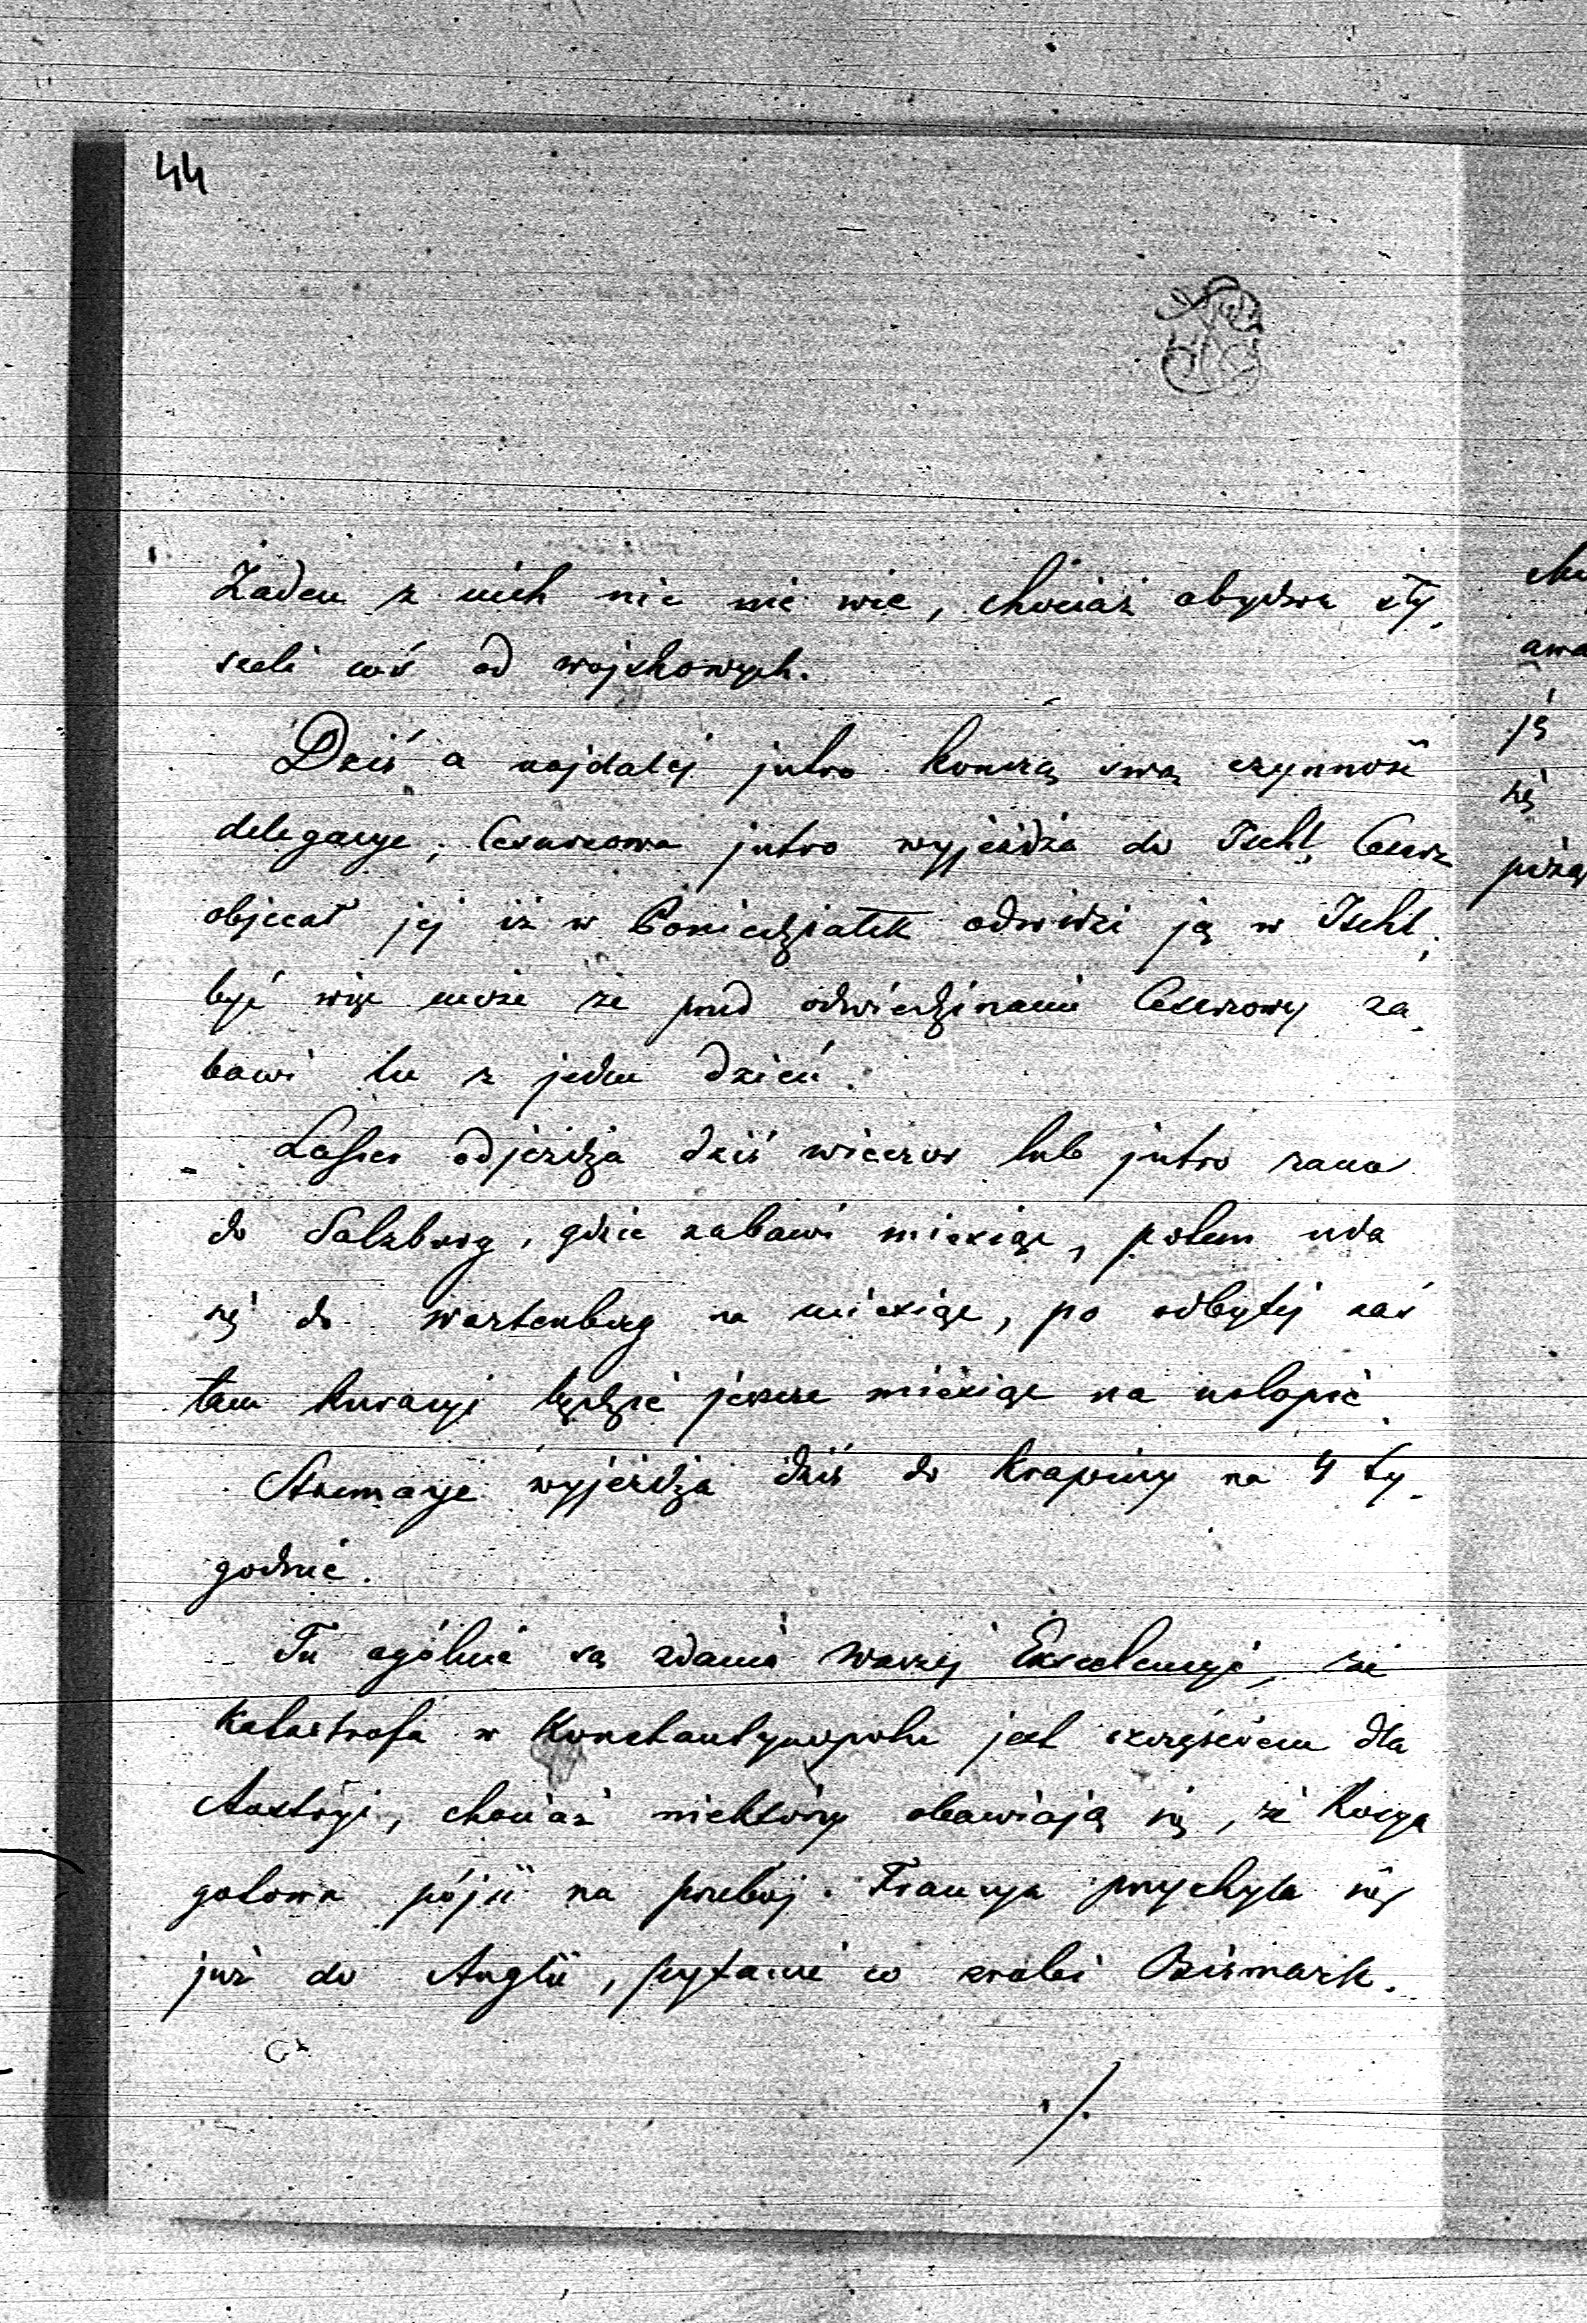 44
Żaden z nich nic nie wie, chociaż obydwa sły-
szeli coś od wojskowych.
Dziś a najdalej jutro kończą swą czynność
delegacye, Cesarzowa jutro wyjeżdża do Ischl, Cesarz
objecał jej iż w Poniedziałek odwidzi ją w Ischl,
być więc może że pred odwiedzinami Cesarzowy za-
bawi tu z jeden dzień.
Lasser odjeżdża dziś wieczor lub jutro rano
do Salzburg, gdzie zabawi miesiąc, potem uda
się do Wartenburg na miesiąc, po odbytej zaś
tam kuracyi będzie jeszcze miesiąc na urlopie.
Stremayr wyjeżdża dziś do Krapiny na 4 ty-
godnie.
Tu ogólnie są zdania Waszej Excelencyi, że
katastrofa w Konstantynopolu jest szczęściem dla
Austryi, chociaż niektóry obawiają się, że Rosya
gotowa pójść na przebój. Francya przychyla się
już do Anglii, pytanie co zrobi Bismark.
./.